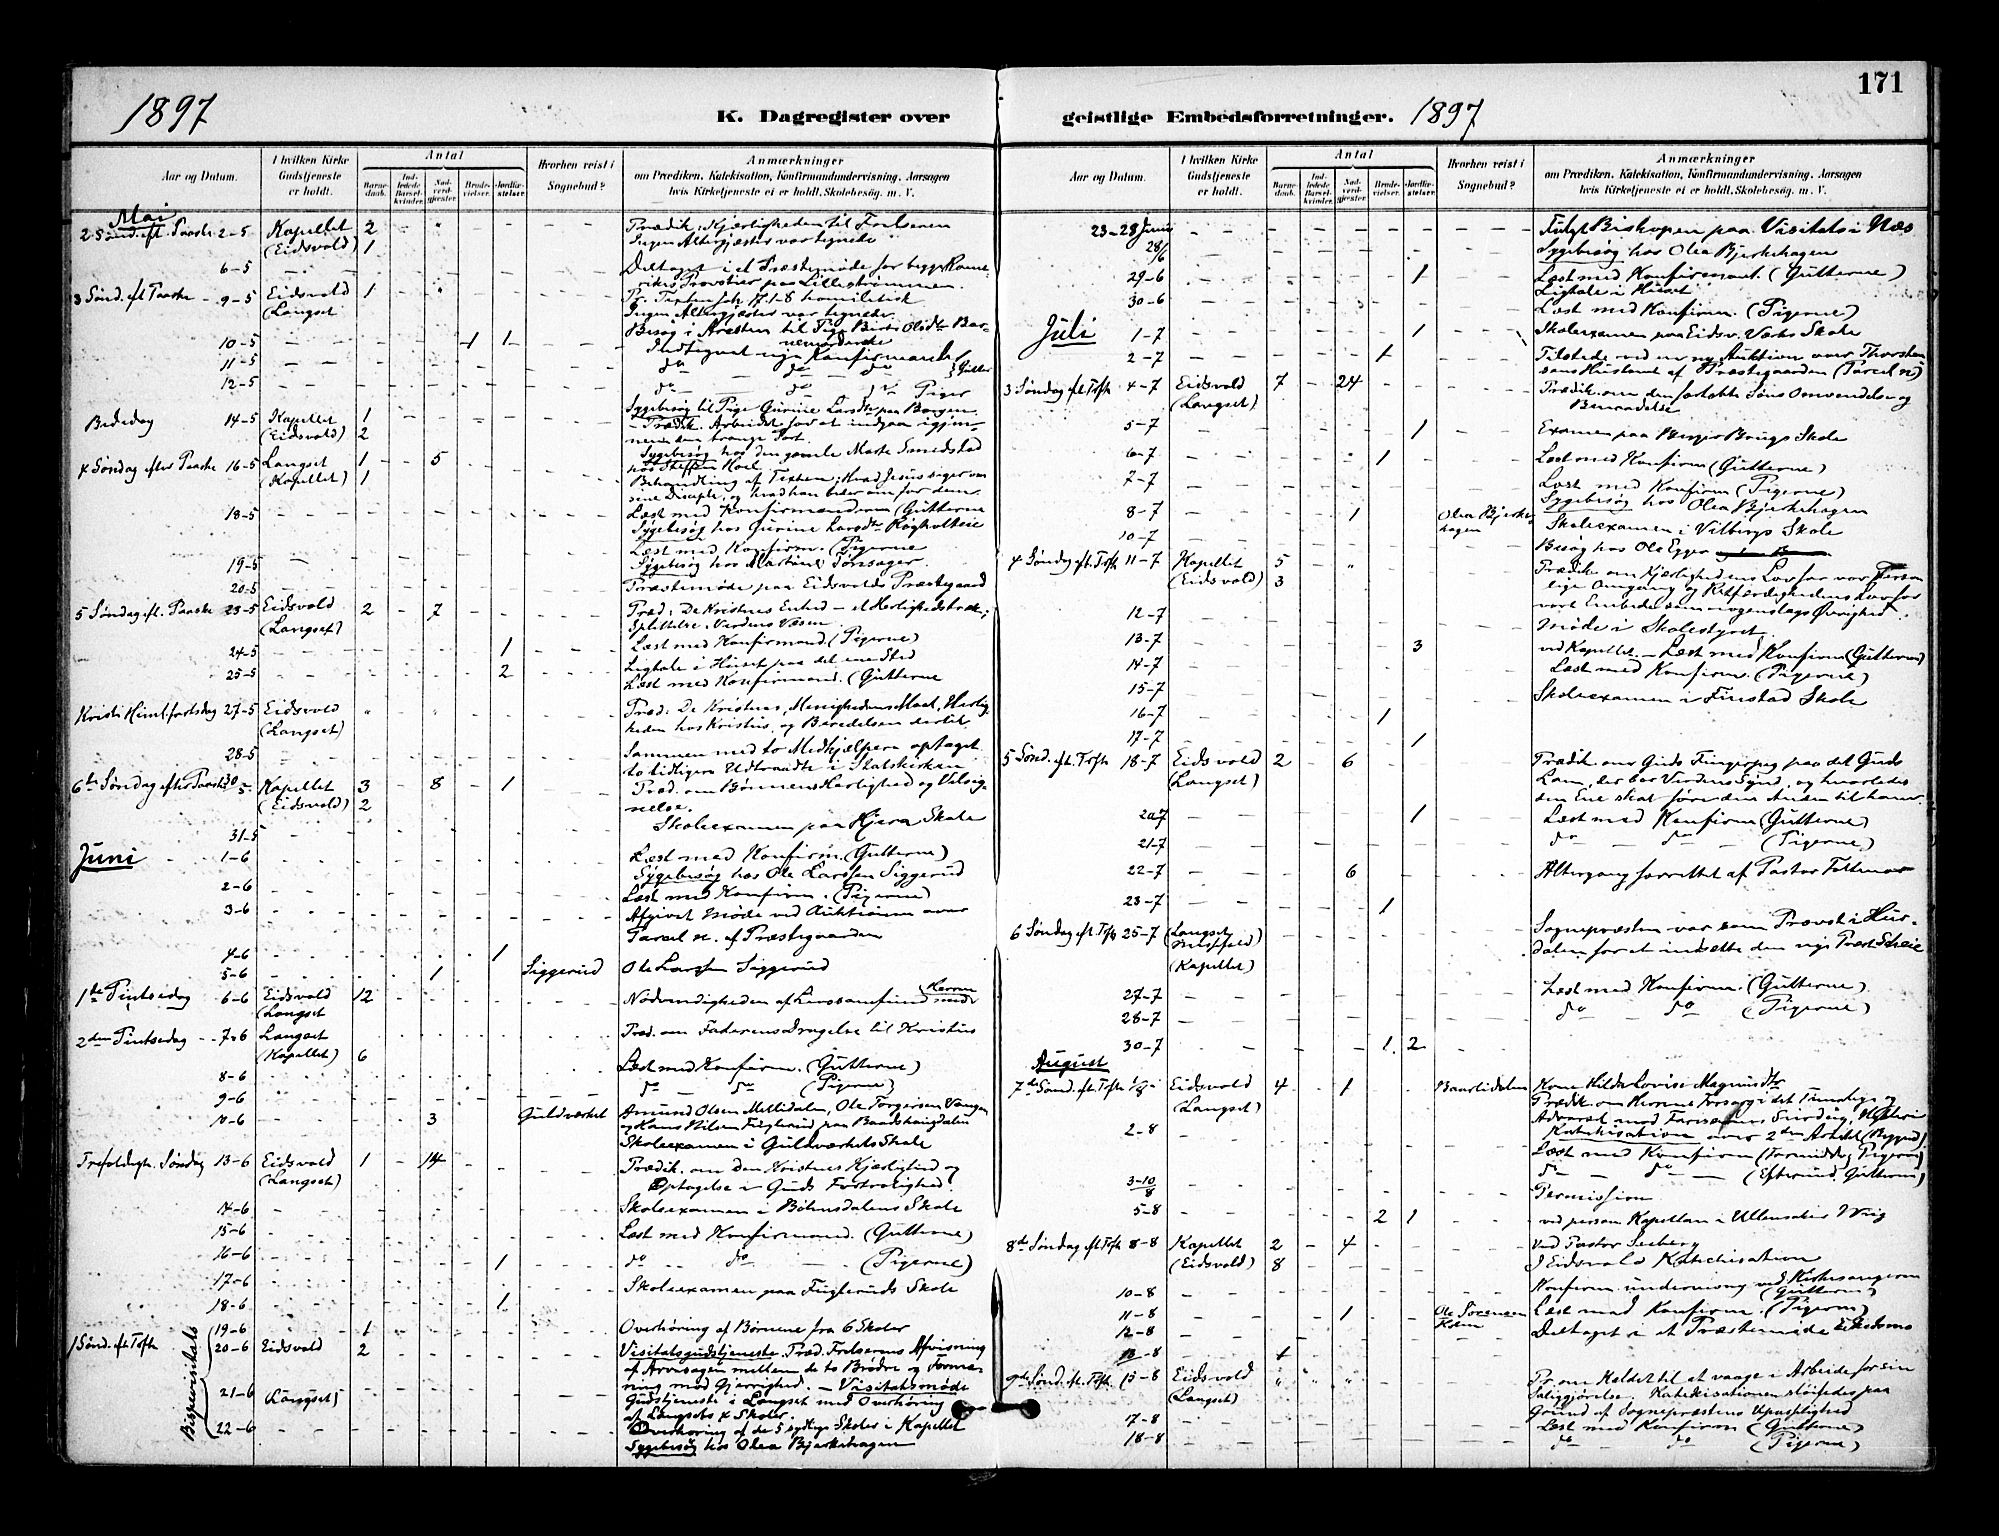 171
1897
K. Dagregister over
geistlige Embedsforretninger. 1897
Aar og Datum.
I hvilken Kirke Gudstjeneste er holdt.
Antal
Barnedaab.
Indledede Barselkvinder.
Nadverdgjester.
Brudevielser.
Jordfæstelser.
Hvorhen reist i Sognebud?
Anmærkninger
om Prædiken, Katekisation, Konfirmandundervisning, Aarsagen
hvis Kirketjeneste ei er holdt, Skolebesøg, m. V.
Mai
2 Sønd. eft. Paaske 2-5 Kapellet 2 Prædik. Kjærligheden til Frelseren
(Eidsvold) 1 Ingen Altergjæster var tegnede
6-5 Deltaget i et Præstemøde for begge Rome-
rikes Provstier paa Lillestrømmen.
3 Sønd. eft Paaske 9-5 Eidsvold 1 Pr. Texten Joh. 17.1-8 homiletisk
(Langset Ingen Altergjæster var tegnede.
10-5 1 1 Besøg i Arresten til Pige Berte Olsdtr Bar-
nemorderske
11-5 Indtegnet nye Konfirmander
do do do Gutter
12-5 do do do Piger
Sygebesøg til Pige Gurine Larsdtr paa Borgen
Bededag 14-5 Kapellet 1 Prædik. Arbeidet for at indgaa igjen-
(Eidsvold) 2 nem den trange Port.
Sygebesøg hos den gamle Marte Smedstad
4 Søndag efter Paaske 16-5 Langset 1 5 hos Steffen Hoel
(Kapellet) 1 Behandling af Texten; Hvad Jesus siger om
sine Disciple, og hvad han beder om for dem.
18-5 Læst med Konfirmanderne (Gutterne
Sygebesøg hos Gurine Larsdtr
Læst med Konfirm. (Pigerne
19-5 Sygebesøg hos Martine Tønsager.
20-5 Præstemøde paa Eidsvolds Præstegaard
5 Søndag eft. Paaske 23-5 Eidsvold 2 7 Præd: De Kristnes Enhed - et Herlighedstræk;
(Langset) Splittelse Verdens Væsen
24-5 1 Læst med Konfirmand. (Pigerne)
25-5 2 Ligtale i Huset paa det ene Sted
Læst med Konfirmand. (Gutterne
Kristi Himlfartsdag 27-5 Eidsvold Præd: De Kristnes, Menighedens Maal, Herlig-
(Langset) heden hos Kristus, og Beredelsen dertil
28-5 Sammen med to Medhjælpere optaget
to tidligere Udtraadte i Statskirken
6te Søndag efter Paaske 30-5 Kapellet 3 8 1 Præd. om Børnenes Herlighed og Velsig-
(Eidsvold) 2 nelse.
31-5 Skoleexamen paa Hjera Skole
Juni 1-6 Læst med Konfirm. (Gutterne)
Sygebesøg hos Ole Larssen Siggerud
2-6 Læst med Konfirm. (Pigerne)
3-6 Afgivet Møde ved Auktionen over
Parcel n. af Præstegaarden
4-6 1
5-6 1 Siggerud Ole Larssen Siggerud
1ste Pintsedag 6-6 Eidsvold 12 Nødvendigheden af Livssamfund med Herren
(Langset
2den Pintsedag 7-6 Langset Præd. om Faderens Dragelse til Kristus
(Kapellet) 6
8-6 Læst med Konfirm. (Gutterne)
9-6 do do (Pigerne)
10-6 3 Guldværket Amund Olsen Mellidalen, Ole Torgersen Vangen
og Hans Nilsen Fuglerud paa
Skoleexamen i Guldværkets Skole
Trefoldigh. Søndag 13-6 Eidsvold 1 14 Prædik. om Den Kristnes Kjærlighed og
(Langset) Optagelse i Guds Fortrolighed.
14-6 Skoleexamen i Bøhnsdalens Skole
15-6 Læst med Konfirmand. (Gutterne)
16-6 1 do do (Pigerne)
17-6 Skoleexamen paa Fuglerud Skole
18-6 1
Bispevisitats
19-6 1 Overhøring af Børnene fra 6 Skoler
1 Sønd. eft Tfst 20-6 Eidsvold 2 Visitatsgudstjeneste. Præd. Frelserens Afvisning
af Arvesagen mellem de to Brødre og Forma-
ning mod Gjerrighed. - Visitatsmøde
21-6 (Langset) Gudstjeneste i Langset med Overhøring
af Langsets 4 Skoler.
22-6 Overhøring af de 5 sydlige Skoler i Kapellet
Sygebesøg hos Olea Bjerkehagen
23-28 Juni Fulgt Biskopen paa Visitats i Næs
28/6 Sygebesøg hos Olea Bjerkehagen
29-6 1 Læst med Konfirmand. (Gutterne)
Ligtale i Huset
30-6 Læst med Konfirm. (Pigerne)
Juli 1-7 1 Skoleexamen paa Eidsv. Værks Skole
2-7 1 Tilstede ved en ny Auktion over
af Præstegaarden (Parcel n)
3 Søndag eft Tfst 4-7 Eidsvold 7 24 Prædik om den fortabte Søns Omvendelse og
(Langset) Benaadelse
5-7 1 Examen paa Skole
6-7 1 Læst med Konfirm (Gutterne)
7-7 Læst med Konfirm (Pigerne)
Sygebesøg hos Olea Bjerkehagen
8-7 1 Olea Bjerkehagen Skoleexamen i Vilbergs Skole
10-7 Besøg hos Ole Egger
4 Søndag eft. Tfst 11-7 Kapellet 5 Prædik om Kjærlighedens Lov for vor Person
(Eidsvold) 3 lige Omgang og Retfærdighedens Lov for
vort Embede som nogenslags Øvrighed
12-7 Møde i Skolestyret
13-7 3 ved Kapellet. - Læst med Konfirm (Gutterne)
14-7 Læst med Konfirm. (Pigerne)
15-7 Skoleexamen i Finstad Skole
16-7 1
17-7 1
5 Sønd. eft. Tfst 18-7 Eidsvold 2 6 Prædik om Guds Fingerpeg paa det Guds
(Langset) Lam, der bar Verdens Synd, og hvorledes
den Ene skal føre den Anden til ham.
20-7 1 Læst med Konfirm (Gutterne)
21-7 do do (Pigerne)
22-7 6 Altergang forrettet af Pastor
23-7 1
6 Søndag eft Tfst 25-7 (Langset Sognepræsten var som Provst i Hur-
Messefald) dalen for at indsætte den nye Præst Skeie
(Kapellet)
27-7 Læst med Konfirm. (Gutterne)
28-7 do do (Pigerne)
30-7 1 2
August
7de Sønd. eft Tfst 1/8 Eidsvold 4 1 Kone Hilda Lovise Magnusdtr
(Langset) Prædik om Herrens Forsorg i det Timelige og
Advarsel mod Farisæernes Surdeig, Hykleri
2-8 Katekisation over 2den Artikel
Læst med Konfirm (Formiddag Pigerne)
do do (Eftermid. Gutterne)
3-10/8 Permission
5-8 2 1 ved person Kapellan i Ullensaker Wiig
8de Søndag eft Tfst 8-8 Kapellet 2 4 Ved Pastor Seeberg
(Eidsvold) 8 I Eidsvold Katekisation
10-8 Konfirm. undervisning ved Kirkesangeren
(Gutterne)
11-8 1 Ole Sørensen Læst med Konfirm. (Pigerne)
12-8 Deltaget i et Præstemøde
13-8 1
9de Sønd. eft. Tfst 15-8 Eidsvold Pr. om Kaldet til at vaage i Arbeide for sin
(Langset) Saliggjørelse. Katekisationen sløifedes paa
Grund af Sognepræstens Upasselighed
17-8 Læst med Konfirm (Gutterne)
18-8 do do (Pigerne)